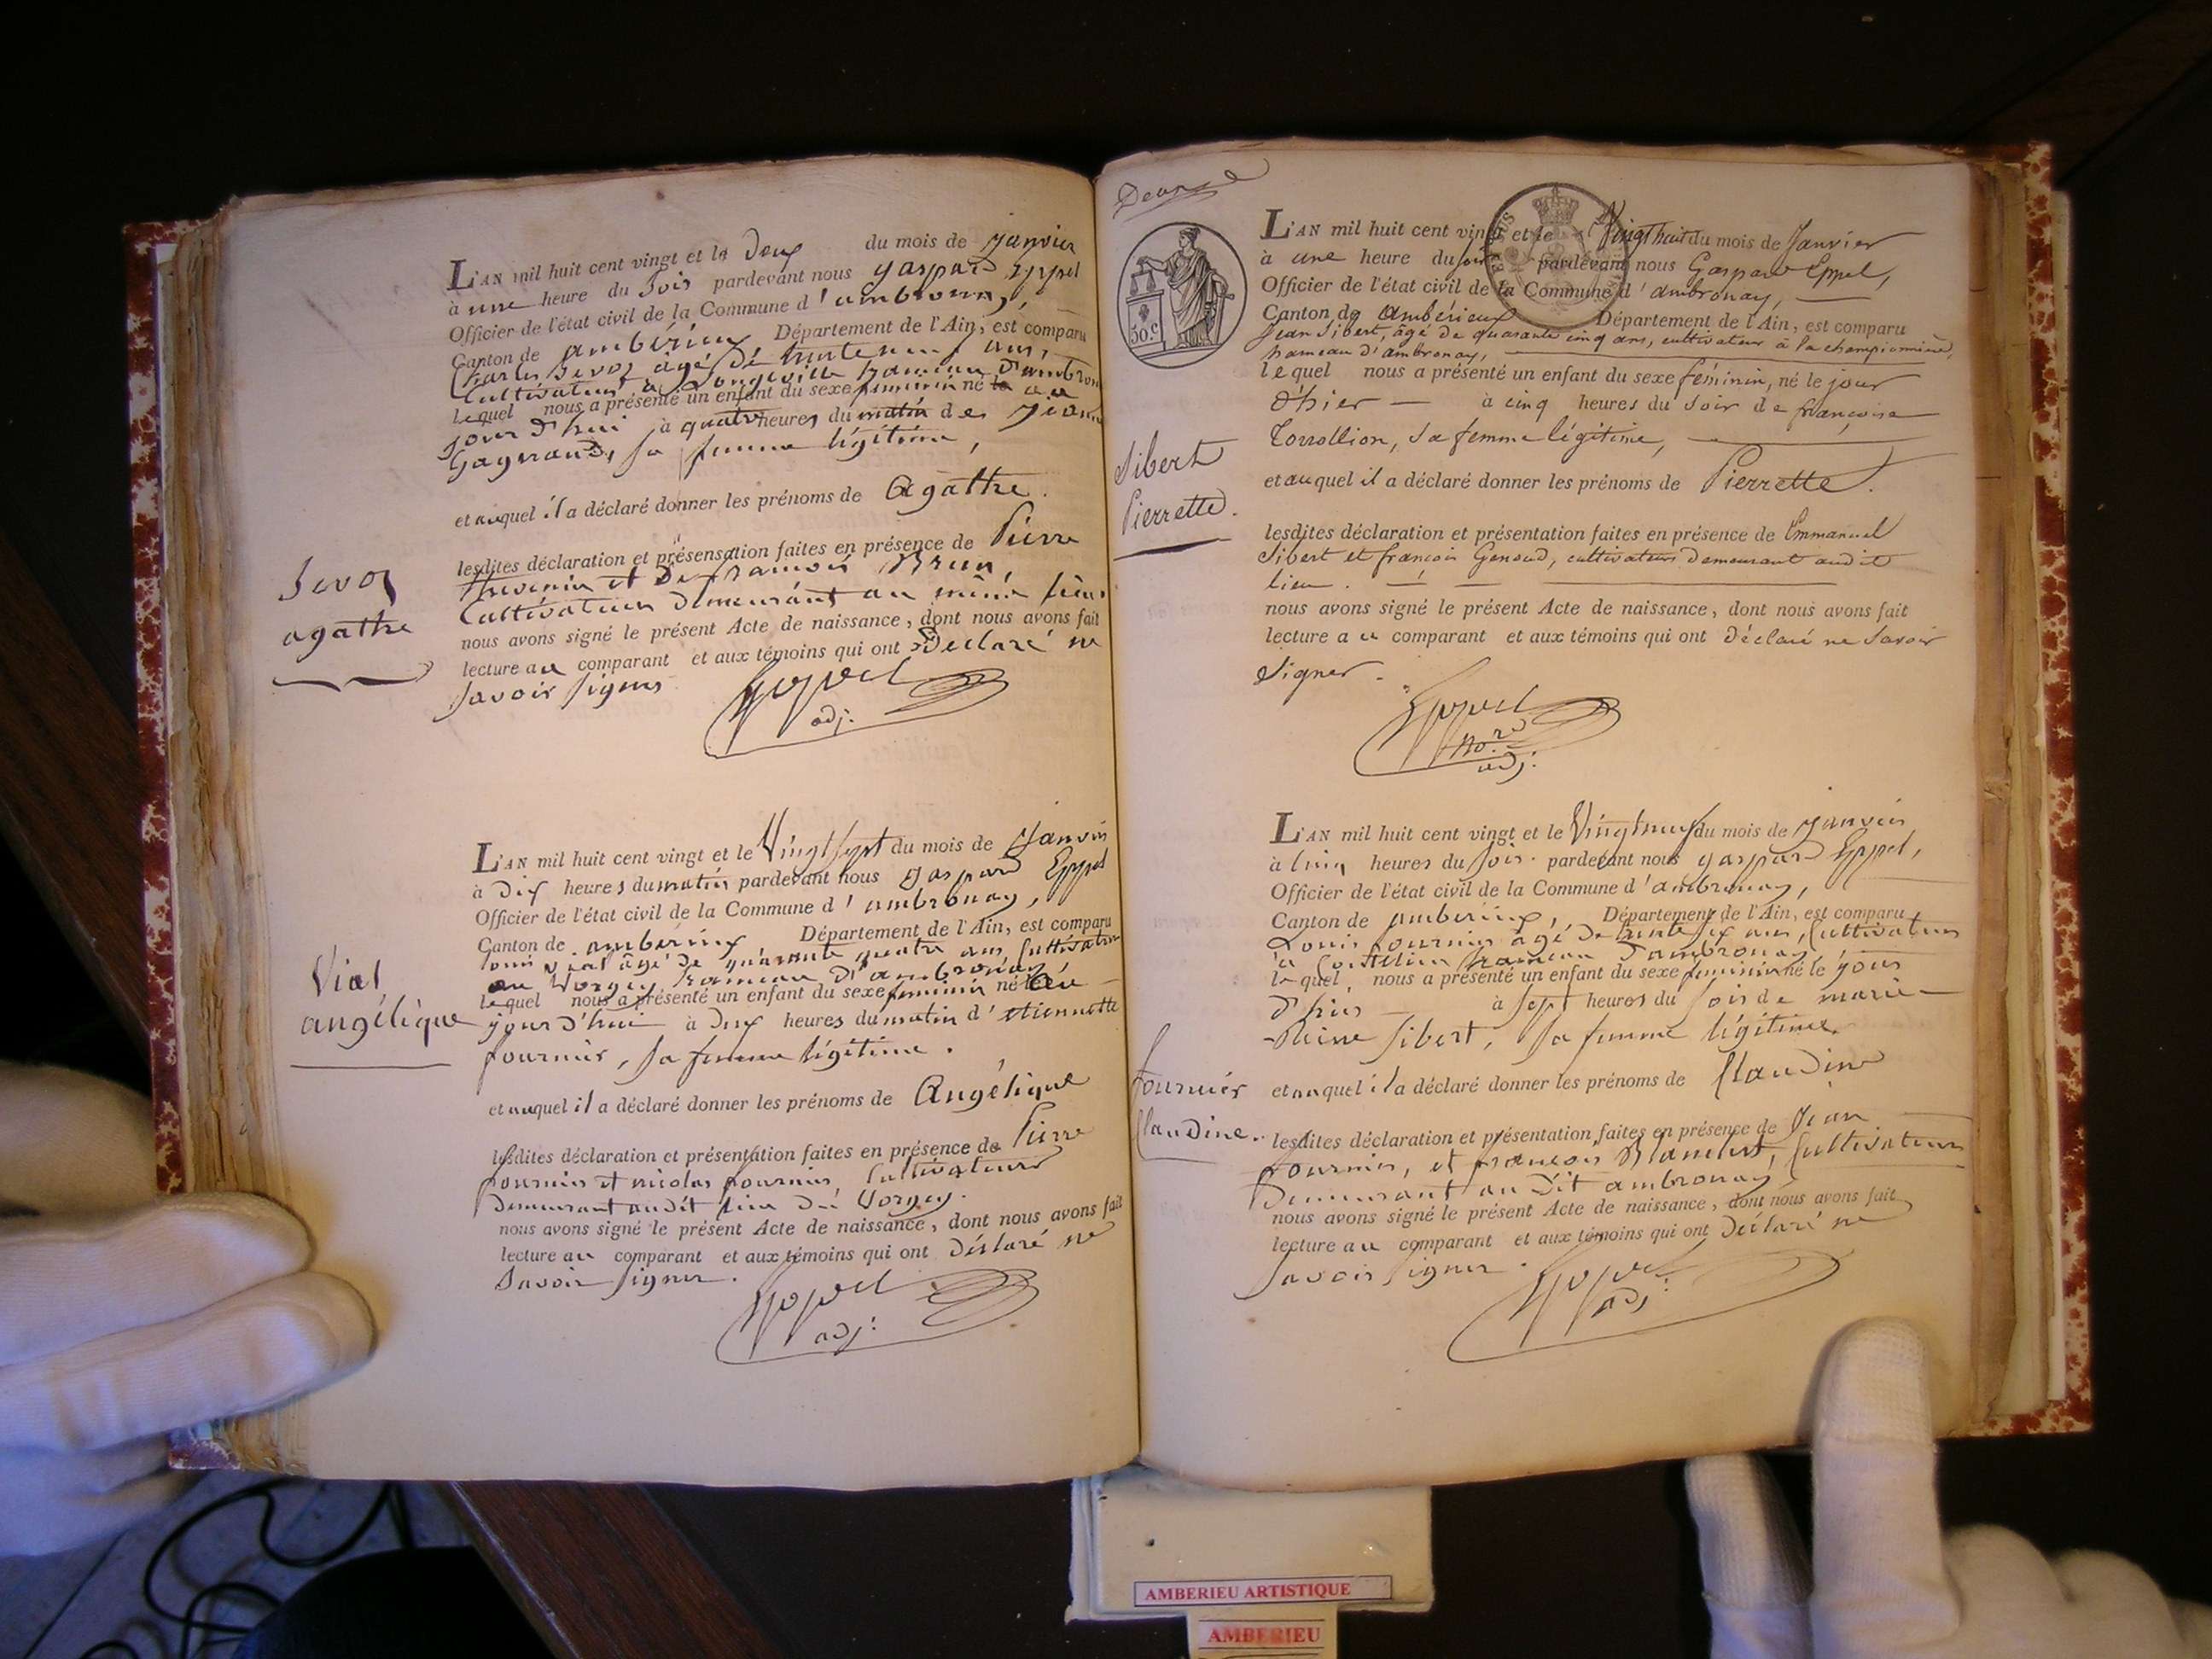 L'AN mil huit cent vingt et le deux du mois de janvier
à une heure du soir pardevant nous gaspard Eppel
Officier de l'état civil de la Commune d'ambronay,
Canton de ambérieux, Département de l'Ain, est comparu
Charles Sevoz âgé de trente neuf ans,
Cultivateur à Longeville hameau d'ambron
lequel nous a présenté un enfant du sexe feminin né le au
jour d'hui à quatre heures du matin de
Gagnaud, sa femme légitime,
et auquel il a déclaré donner les prénoms de Agathe.
lesdites déclaration et présensation faites en présence de Pierre
thevenin et de françois Brun,
Cultivateurs demeurant au même lieu.
nous avons signé le présent Acte de naissance, dont nous avons fait
lecture au comparant et aux témoins qui ont Declaré ne
savoir signer
Eppel
adj.
Sevoz
agathe
L'AN mil huit cent vingt et le Vingt sept du mois de janvier
à dix heures du matin pardevant nous gaspard Eppel
Officier de l'état civil de la Commune d'ambronay,
Canton de ambérieux Département de l'Ain, est comparu
louis vial âgé de quarante quatre ans, Cultivateur
au Vorgey hameau d'ambronay
lequel nous a présenté un enfant du sexe feminin né le au
jour d'hui à deux heures du matin d'etiennette
fournier, sa femme légitime.
et auquel il a déclaré donner les prénoms de Angélique
lesdites déclaration et présentation faites en présence de Pierre
fournier et nicolas fournier, Cultivateurs
demeurant audit lieu du Vorgey.
nous avons signé le présent Acte de naissance, dont nous avons fait
lecture au comparant et aux témoins qui ont déclaré ne
savoir signer.
Eppel
adj.
Vial
angélique
50.c
L'AN mil huit cent vingt et le Vingt huit du mois de Janvier
à une heure du soir pardevant nous Gaspard Eppel,
Officier de l'état civil de la Commune d'ambronay,
Canton de Ambérieux Département de l'Ain, est comparu
Jean Sibert, âgé de quarante cinq ans, cultivateur à la championnière,
hameau d'ambronay,
lequel nous a présenté un enfant du sexe féminin, né le jour
d'hier à cinq heures du soir de françoise
Torrollion, sa femme légitime,
et auquel il a déclaré donner les prénoms de Pierrette.
lesdites déclaration et présentation faites en présence de Emmanuel
Sibert et françois Genoud, cultivateurs demeurant audit
lieu.
nous avons signé le présent Acte de naissance, dont nous avons fait
lecture au comparant et aux témoins qui ont déclaré ne savoir
signer.
Eppel
adj.
Sibert
Pierrette.
L'AN mil huit cent vingt et le Vingt neuf du mois de janvier
à cinq heures du soir pardevant nous gaspard Eppel,
Officier de l'état civil de la Commune d'ambronay,
Canton de ambérieux, Département de l'Ain, est comparu
Louis fournier âgé de trente six ans, Cultivateur
à hameau d'ambronay,
lequel, nous a présenté un enfant du sexe feminin né le jour
d'hier à sept heures du soir de marie
Reine Sibert, sa femme légitime.
et auquel il a déclaré donner les prénoms de Claudine
lesdites déclaration et présentation faites en présence de Jean
fournier, et françois Cultivateurs
demeurant au dit ambronay,
nous avons signé le présent Acte de naissance, dont nous avons fait
lecture au comparant et aux témoins qui ont déclaré ne
savoir signer.
Eppel
adj.
fournier
Claudine.
AMBERIEU ARTISTIQUE
AMBERIEU